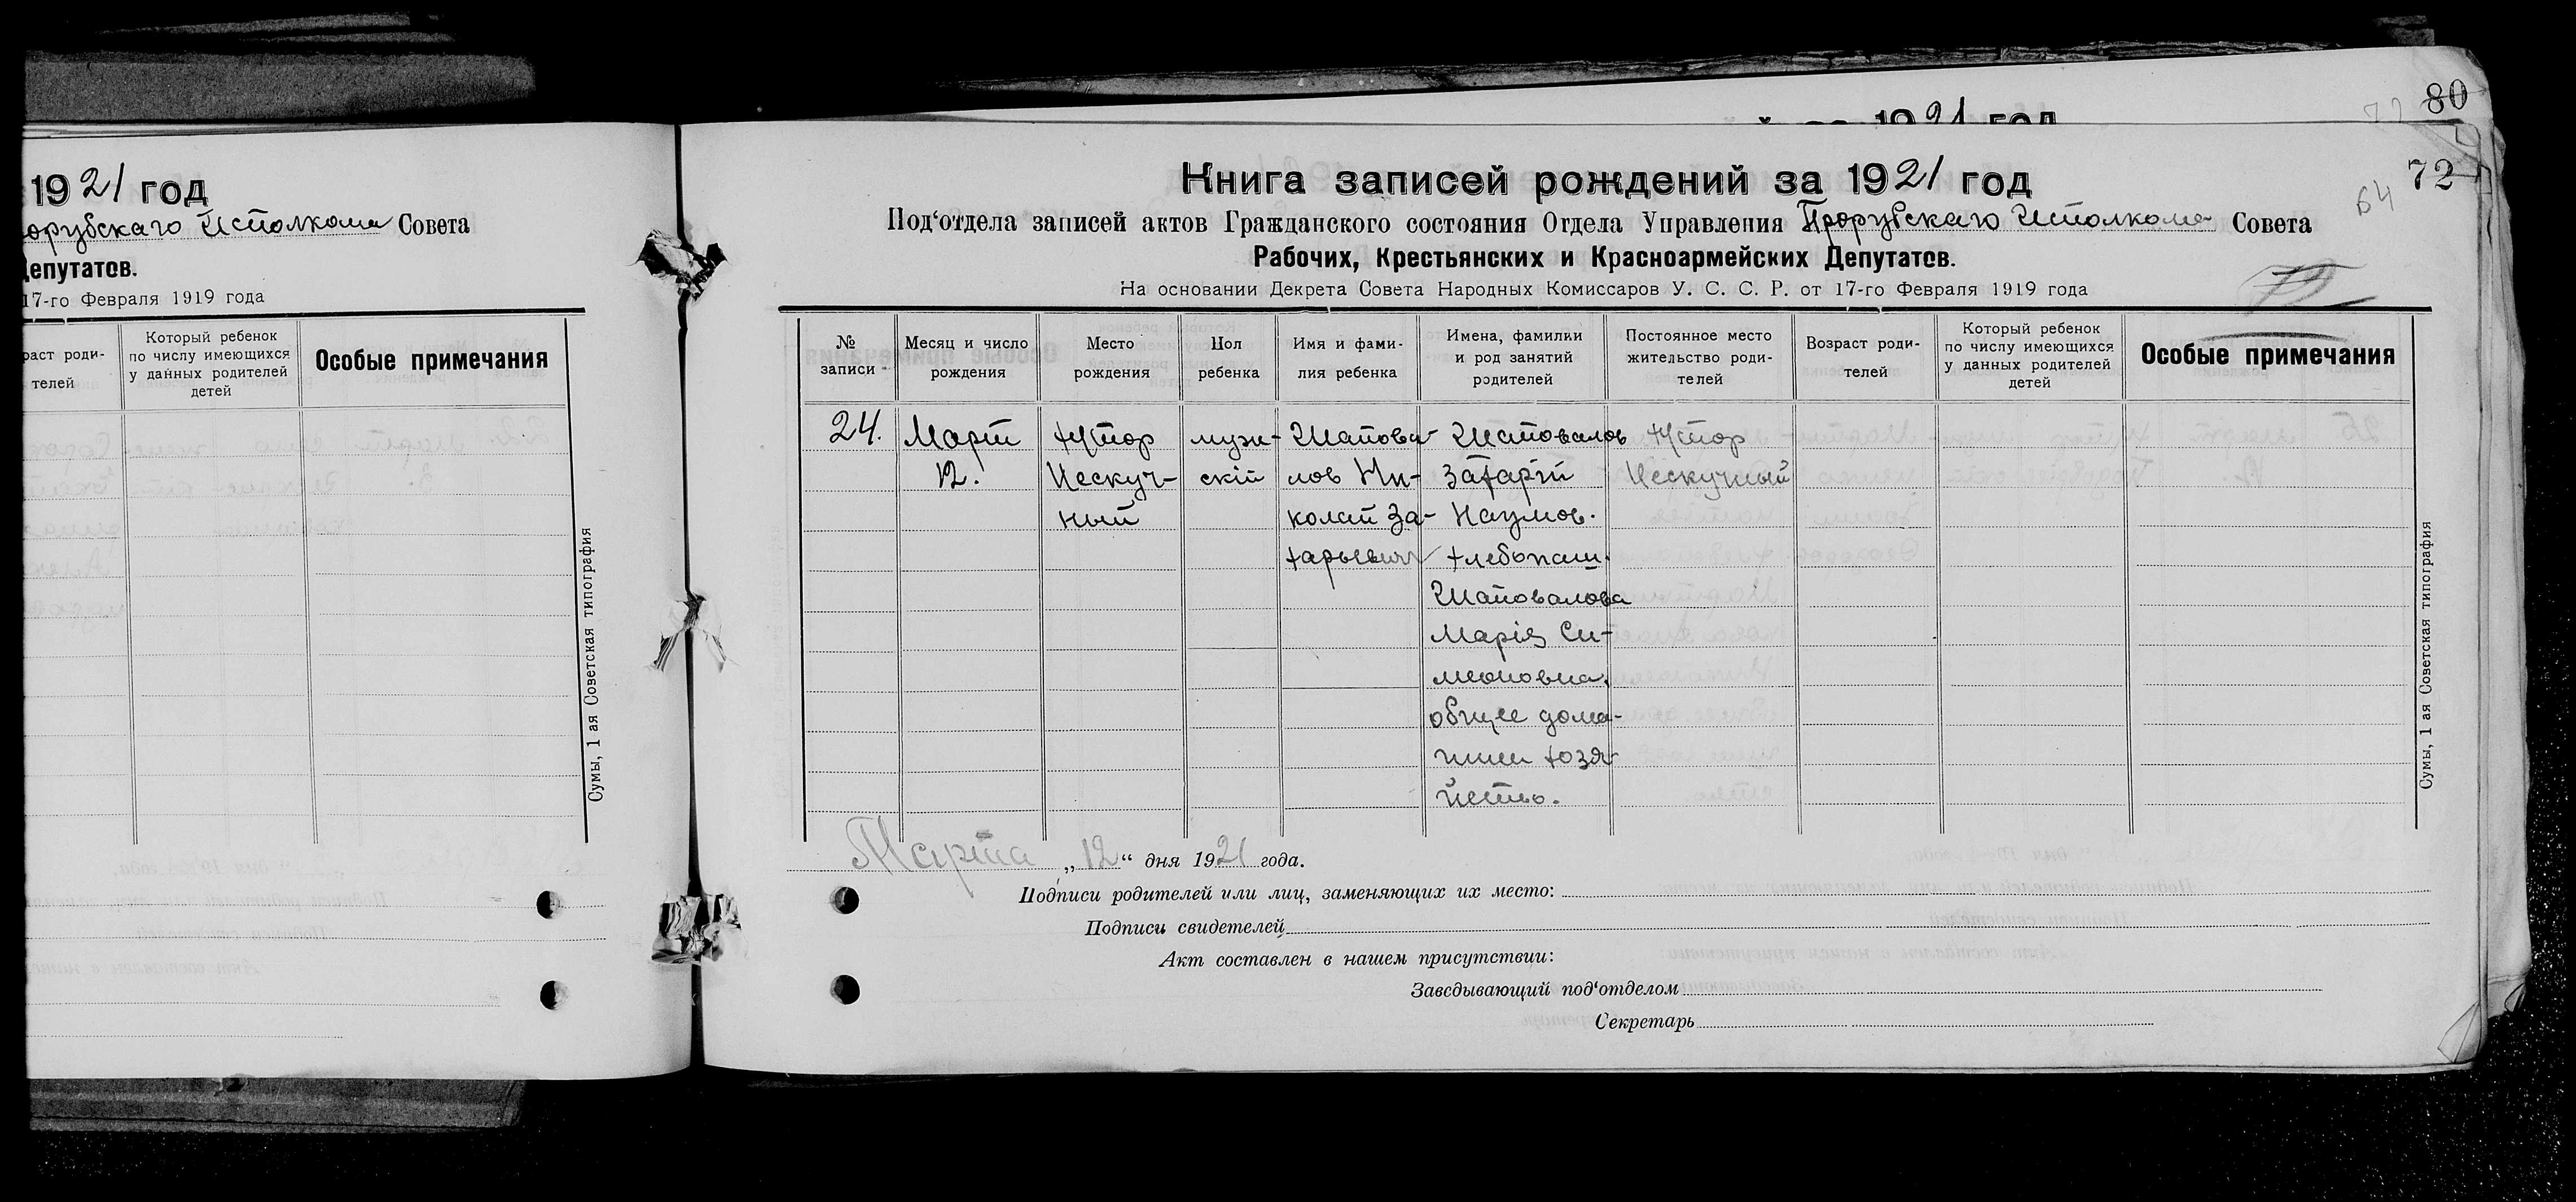 1921 год
орубскаго Исполкома Совета
Депутатов.
17-го Февраля 1919 года
раст роди-
телей
Который ребенок
по числу имеющихся
у данных родителей
детей
Особые примечания
Сумы, 1 ая Советская типография
1921 год
80
72
64
72
Книга записей рождений за 1921 год
Под‘отдела записей актов Гражданского состояния Отдела Управления Прорубскаго Исполкома Совета
Рабочих, Крестьянских и Красноармейских Депутатов.
На основании Декрета Совета Народных Комиссаров У. С. С. Р. от 17-го Февраля 1919 года
№
записи
Месяц и число
рождения
Место
рождения
Пол
ребенка
Имя и фами-
лия ребенка
Имена, фамилии
и род занятий
родителей
Постоянное место
жительство роди-
телей
Возраст роди-
телей
Который ребенок
по числу имеющихся
у данных родителей
детей
Особые примечания
24.
Март
12.
Хутор
Нескуч-
ный
муж-
скій
Шапова-
лов Ни-
колай За-
харьевич
Шаповалов
Захарій
Наумов.
хлебопаш.
Шаповалова
Марія Си-
меоновна,
общее дома-
шнее хозя-
йство.
Хутор
Нескучный
Сумы, 1 ая Советская типография
Марта „12“ дня 1921 года.
Подписи родителей или лиц, заменяющих их место:
Подписи свидетелей
Акт составлен в нашем присутствии:
Заведывающий под‘отделом
Секретарь